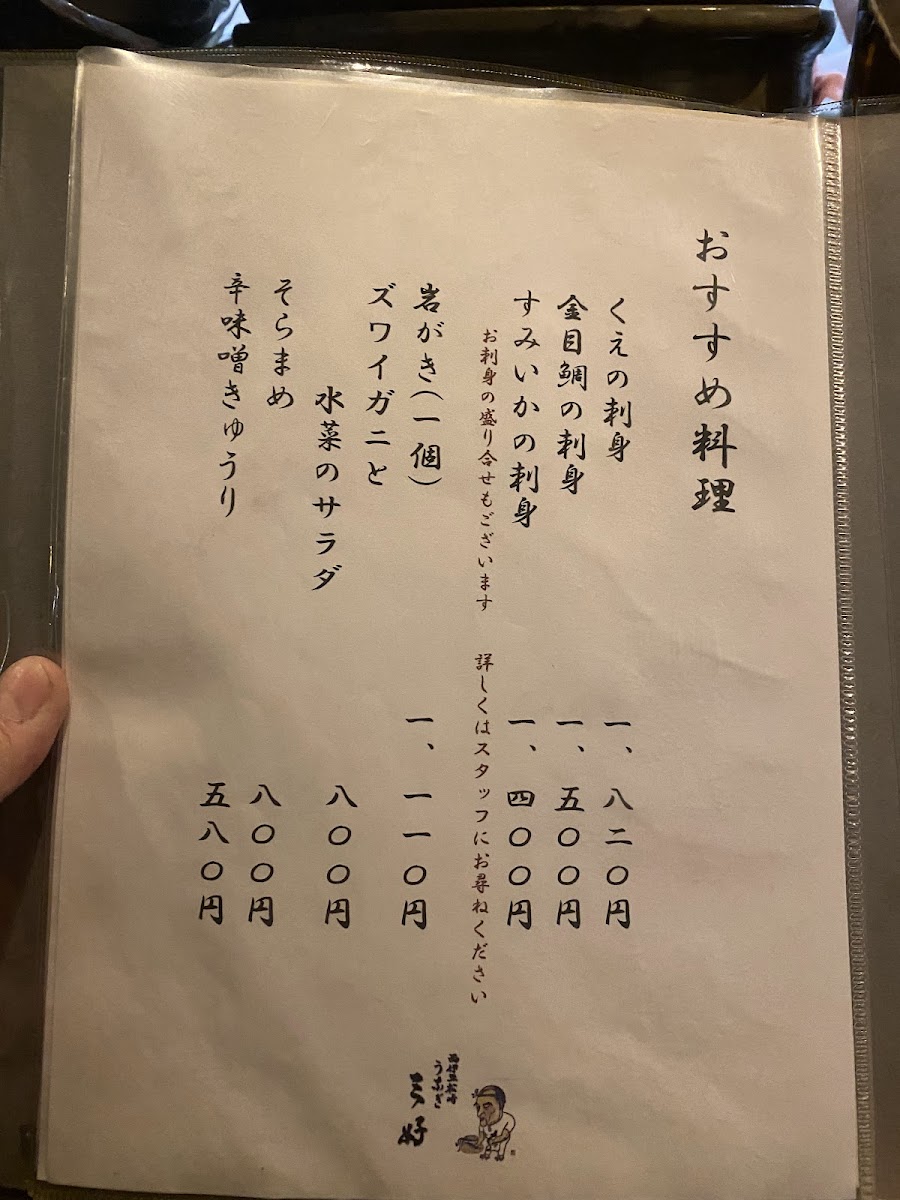 おすすめ料理
くえの刺身 一、八二〇円
金目鯛の刺身 一、五〇〇円
すみいかの刺身 一、四〇〇円
お刺身の盛り合せもございます 詳しくはスタッフにお尋ねください
岩がき(一個) 一、一一〇円
ズワイガニと
水菜のサラダ 八〇〇円
そらまめ 八〇〇円
辛味噌きゅうり 五八〇円
うなぎ
三好